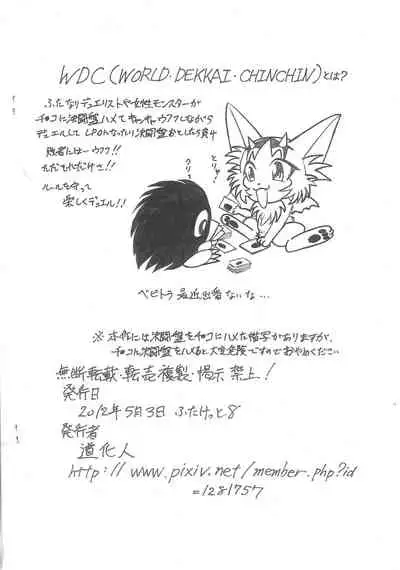 WDC(WORLD・DEKKAI・CHINCHIN)とは?
ふたなりデュエリストや女性モンスターが
チ○コに決闘盤ハメてキャッキャウフフしながら
デュエルして LP0になったり決闘盤おとしたら負け
敗者にはーウフフ!!
ただそれだけさ!!
ルールを守って
楽しくデュエル!!
とりゃ!
クリ〜
ベビトラ 最近出番ないな…
※本作には決闘盤をチ○コにハメた描写がありますが、
チ○コに決闘盤をハメると大変危険ですのでおやめください
無断転載・転売・複製・掲示 禁止!
発行日
2012年5月3日 ふたけっと8
発行者
道化人
http://www.pixiv.net/member.php?id
=1281757